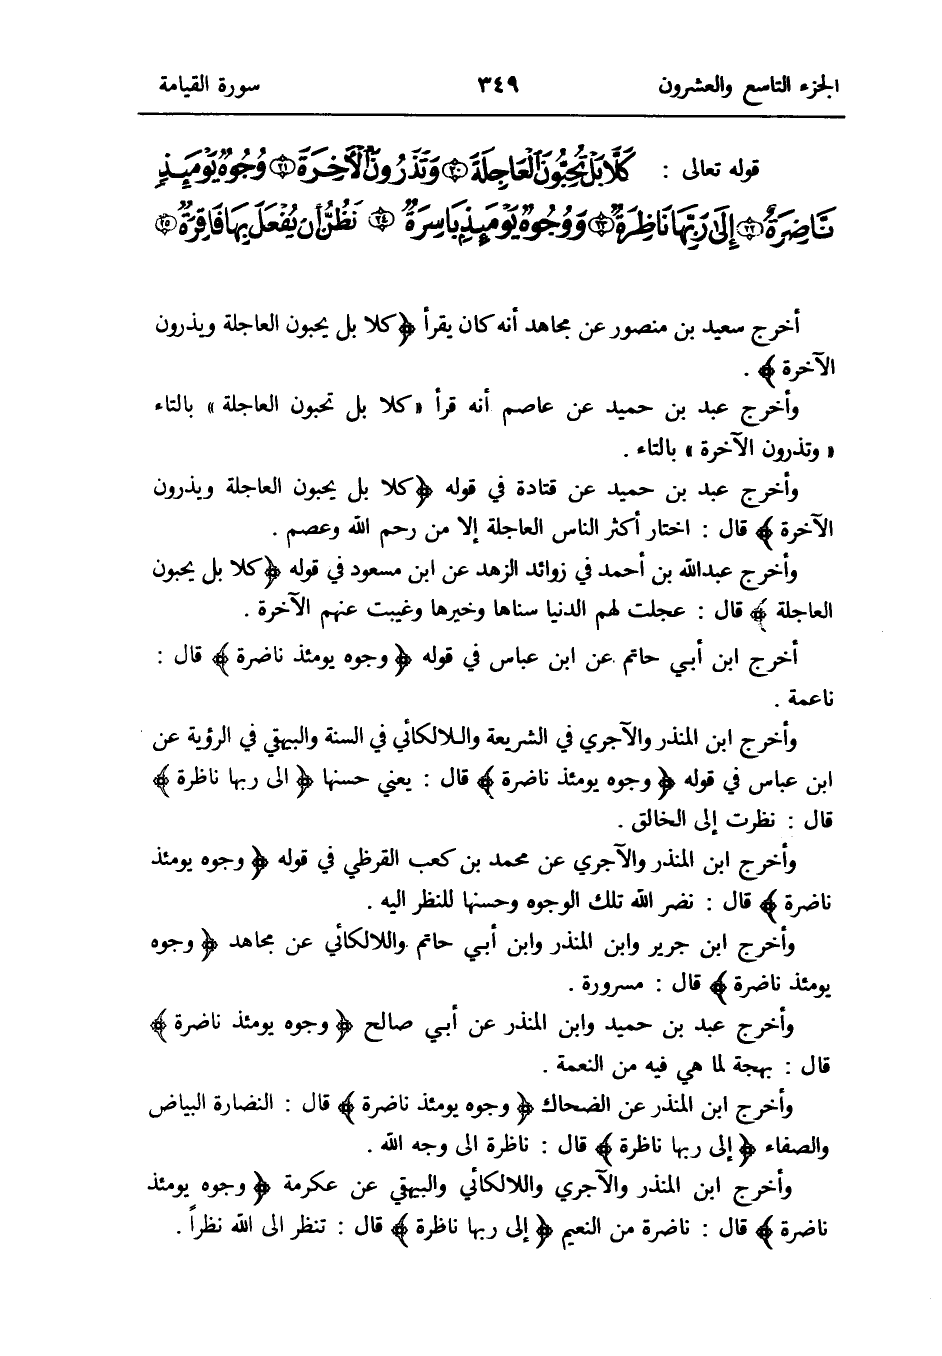 الجزء التاسع والعشرون ٣٤٩ سورة القيامة
قوله تعالى : كَلَّا بَلْ تُحِبُّونَ ٱلْعَاجِلَةَ ﴿٢٠﴾ وَتَذَرُونَ ٱلْآخِرَةَ ﴿٢١﴾ وُجُوهٌ يَوْمَئِذٍ
نَّاضِرَةٌ ﴿٢٢﴾ إِلَىٰ رَبِّهَا نَاظِرَةٌ ﴿٢٣﴾ وَوُجُوهٌ يَوْمَئِذٍ بَاسِرَةٌ ﴿٢٤﴾ تَظُنُّ أَن يُفْعَلَ بِهَا فَاقِرَةٌ ﴿٢٥﴾
أخرج سعيد بن منصور عن مجاهد أنه كان يقرأ ﴿ كلا بل يحبون العاجلة ويذرون
الآخرة ﴾ .
وأخرج عبد بن حميد عن عاصم أنه قرأ « كلا بل تحبون العاجلة » بالتاء
« وتذرون الآخرة » بالتاء .
وأخرج عبد بن حميد عن قتادة في قوله ﴿ كلا بل يحبون العاجلة ويذرون
الآخرة ﴾ قال : اختار أكثر الناس العاجلة إلا من رحم الله وعصم .
وأخرج عبدالله بن أحمد في زوائد الزهد عن ابن مسعود في قوله ﴿ كلا بل يحبون
العاجلة ﴾ قال : عجلت لهم الدنيا سناها وخيرها وغيبت عنهم الآخرة .
أخرج ابن أبي حاتم عن ابن عباس في قوله ﴿ وجوه يومئذ ناضرة ﴾ قال :
ناعمة .
وأخرج ابن المنذر والآجري في الشريعة واللالكائي في السنة والبيهقي في الرؤية عن
ابن عباس في قوله ﴿ وجوه يومئذ ناضرة ﴾ قال : يعني حسنها ﴿ الى ربها ناظرة ﴾
قال : نظرت إلى الخالق .
وأخرج ابن المنذر والآجري عن محمد بن كعب القرظي في قوله ﴿ وجوه يومئذ
ناضرة ﴾ قال : نضر الله تلك الوجوه وحسنها للنظر اليه .
وأخرج ابن جرير وابن المنذر وابن أبي حاتم واللالكائي عن مجاهد ﴿ وجوه
يومئذ ناضرة ﴾ قال : مسرورة .
وأخرج عبد بن حميد وابن المنذر عن أبي صالح ﴿ وجوه يومئذ ناضرة ﴾
قال : بهجة لما هي فيه من النعمة .
وأخرج ابن المنذر عن الضحاك ﴿ وجوه يومئذ ناضرة ﴾ قال : النضارة البياض
والصفاء ﴿ إلى ربها ناظرة ﴾ قال : ناظرة الى وجه الله .
وأخرج ابن المنذر والآجري واللالكائي والبيهقي عن عكرمة ﴿ وجوه يومئذ
ناضرة ﴾ قال : ناضرة من النعيم ﴿ إلى ربها ناظرة ﴾ قال : تنظر الى الله نظراً .